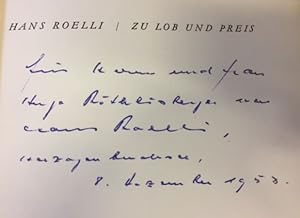 HANS ROELLI / ZU LOB UND PREIS
Für Herrn und Frau
Hugo Röthlisberger von
Hans Roelli,
Herzogenbuchsee,
8. Dezember 1953.